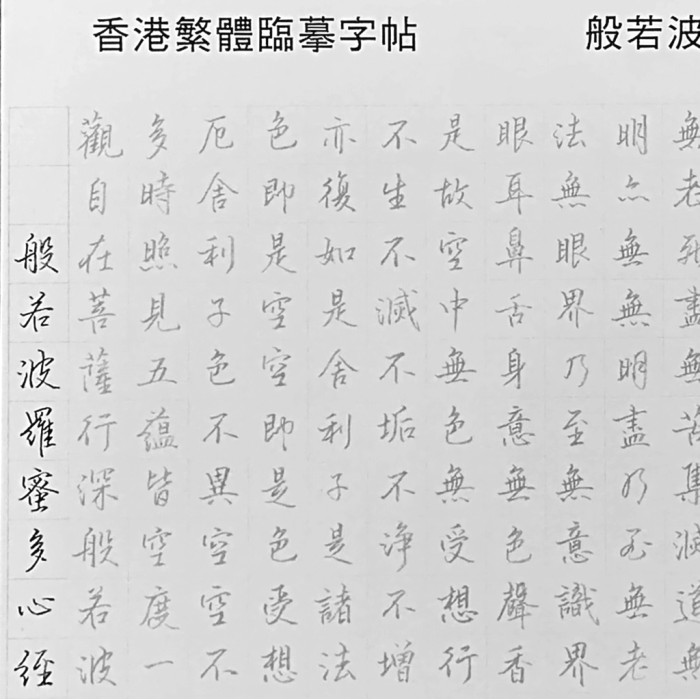 香港繁體臨摹字帖
般若波
般若波羅蜜多心經
觀自在菩薩行深般若波
多時照見五蘊皆空度一
厄舍利子色不異空空不
色即是空空即是色受想
亦復如是舍利子是諸法
不生不滅不垢不淨不增
是故空中無色無受想行
眼耳鼻舌身意無色聲香
法無眼界乃至無意識界
明亦無無明盡乃至無老
無老死盡無苦集滅道無